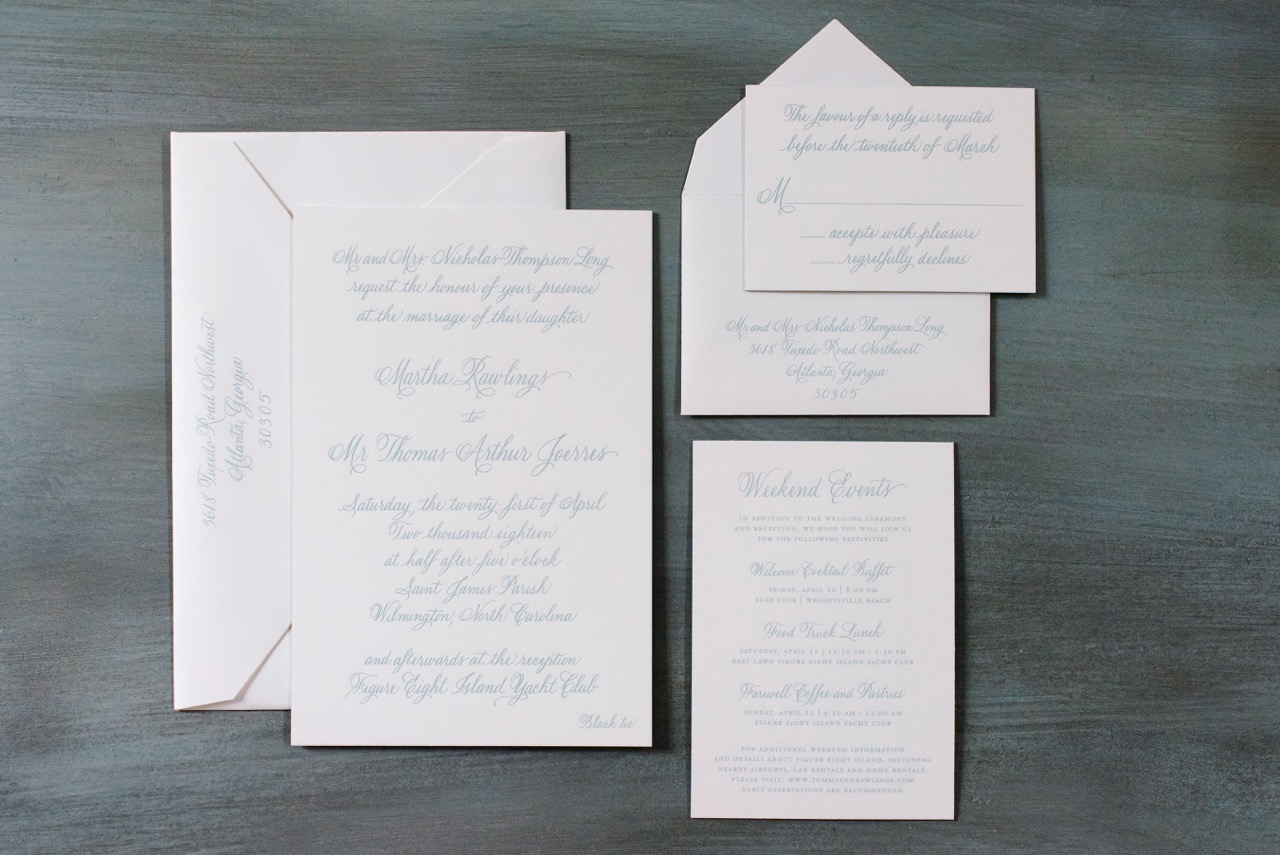 3618 Tuxedo Road Northwest
Atlanta, Georgia
30305
Mr and Mrs Nicholas Thompson Long
request the honour of your presence
at the marriage of their daughter
Martha Rawlings
to
Mr Thomas Arthur Joerres
Saturday, the twenty first of April
Two thousand eighteen
at half after five o'clock
Saint James Parish
Wilmington, North Carolina
and afterwards at the reception
Figure Eight Island Yacht Club
Black tie
The favour of a reply is requested
before the twentieth of March
M
accepts with pleasure
regretfully declines
Mr and Mrs Nicholas Thompson Long
3618 Tuxedo Road Northwest
Atlanta, Georgia
30305
Weekend Events
IN ADDITION TO THE WEDDING CEREMONY
AND RECEPTION, WE HOPE YOU WILL JOIN US
FOR THE FOLLOWING FESTIVITIES
Welcome Cocktail Buffet
FRIDAY, APRIL 20 | 8:00 PM
SURF CLUB | WRIGHTSVILLE BEACH
Food Truck Lunch
SATURDAY, APRIL 21 | 11:30 AM - 1:30 PM
EAST LAWN FIGURE EIGHT ISLAND YACHT CLUB
Farewell Coffee and Pastries
SUNDAY, APRIL 22 | 9:30 AM - 11:00 AM
FIGURE EIGHT ISLAND YACHT CLUB
FOR ADDITIONAL WEEKEND INFORMATION
AND DETAILS ABOUT FIGURE EIGHT ISLAND, INCLUDING
NEARBY AIRPORTS, CAR RENTALS AND HOME RENTALS,
PLEASE VISIT: WWW.TOMMYANDRAWLINGS.COM
EARLY RESERVATIONS ARE RECOMMENDED